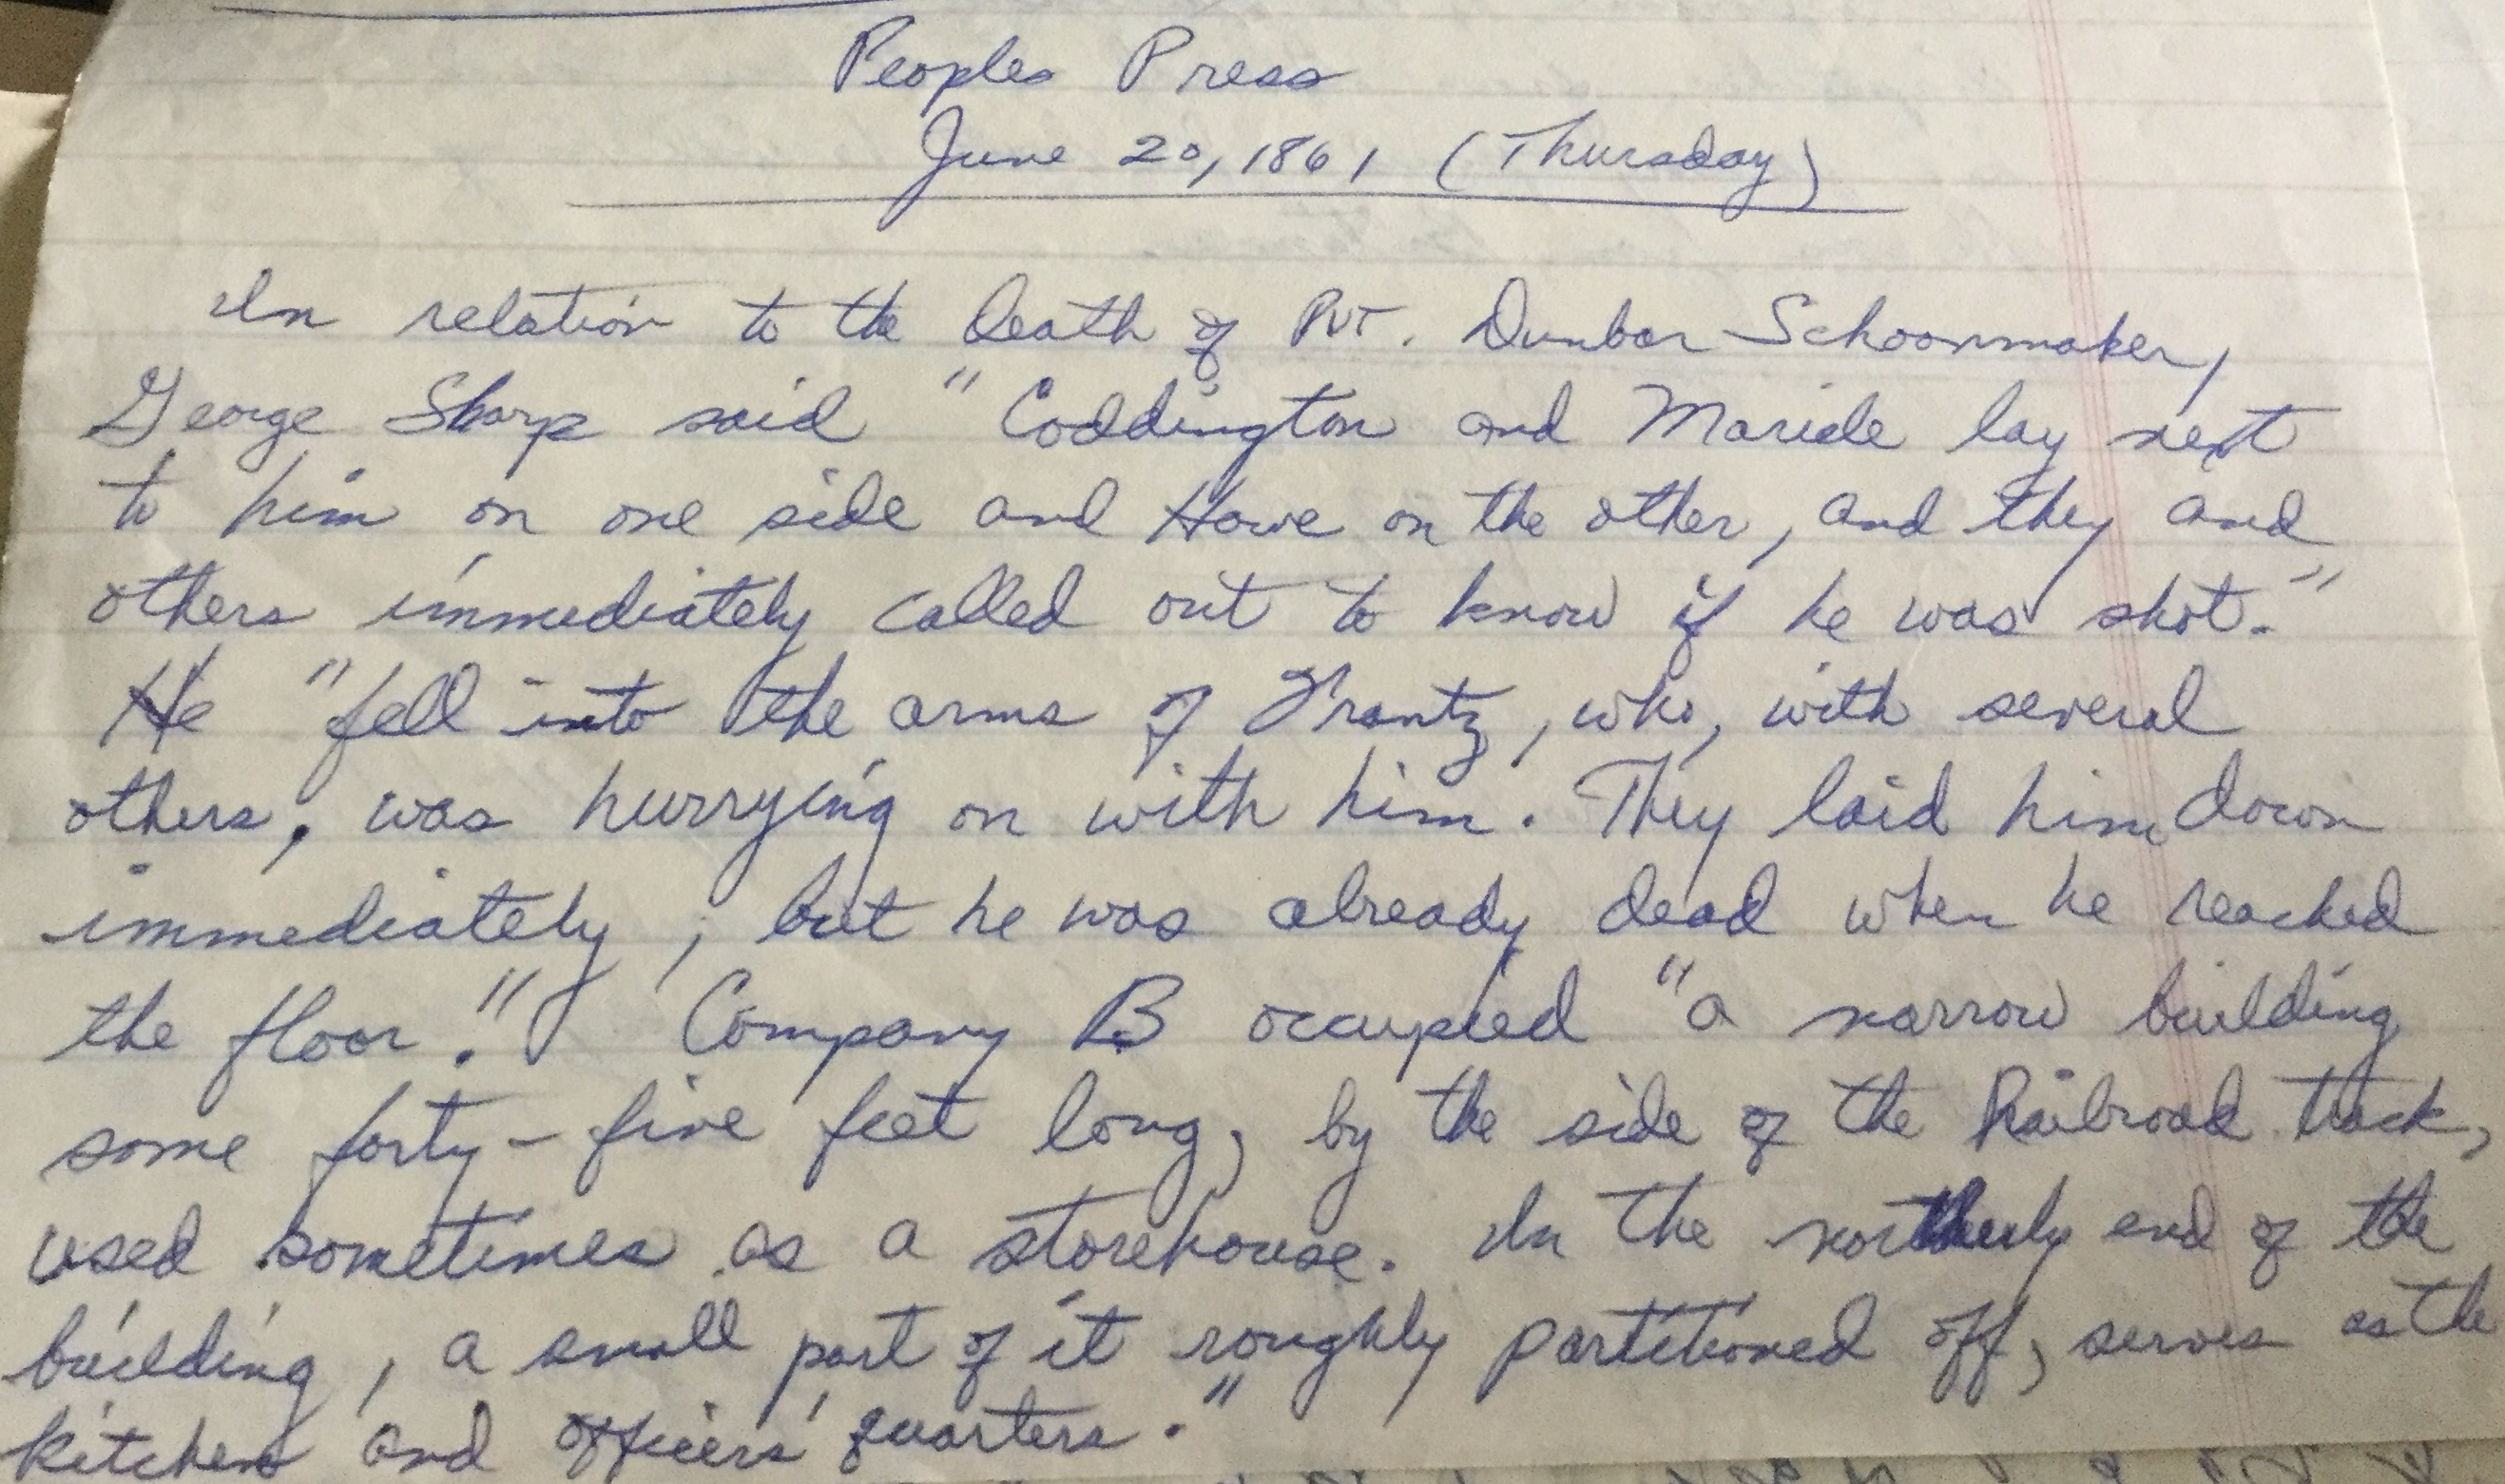 Peoples Press
June 20, 1861 (Thursday)
In relation to the death of Pvt. Dunbar Schoonmaker,
George Sharp said "Coddington and lay next
to him on one side and Howe on the other, and they and
others immediately called out to know if he was shot."
He "fell into the arms of Frantz, who, with several
others, was hurrying on with him. They laid him down
immediately, but he was already dead when he reached
the floor." Company B occupied "a narrow building
some forty-five feet long, by the side of the Railroad track,
used sometimes as a storehouse. In the northerly end of the
building, a small part of it roughly partitioned off, serves as the
kitchen and officers' quarters."